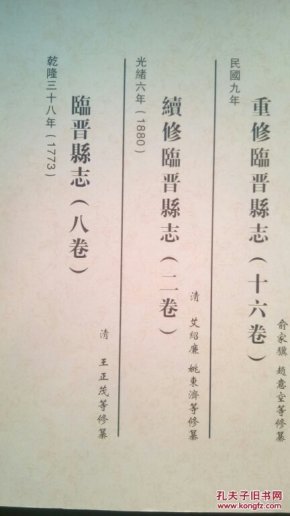 民國九年
重修臨晋縣志（十六卷）
俞家驥 趙意空等修纂
光緒六年（1880）
續修臨晋縣志（二卷）
清 艾紹濂 姚東濟等修纂
乾隆三十八年（1773）
臨晋縣志（八卷）
清 王正茂等修纂
孔夫子旧书网